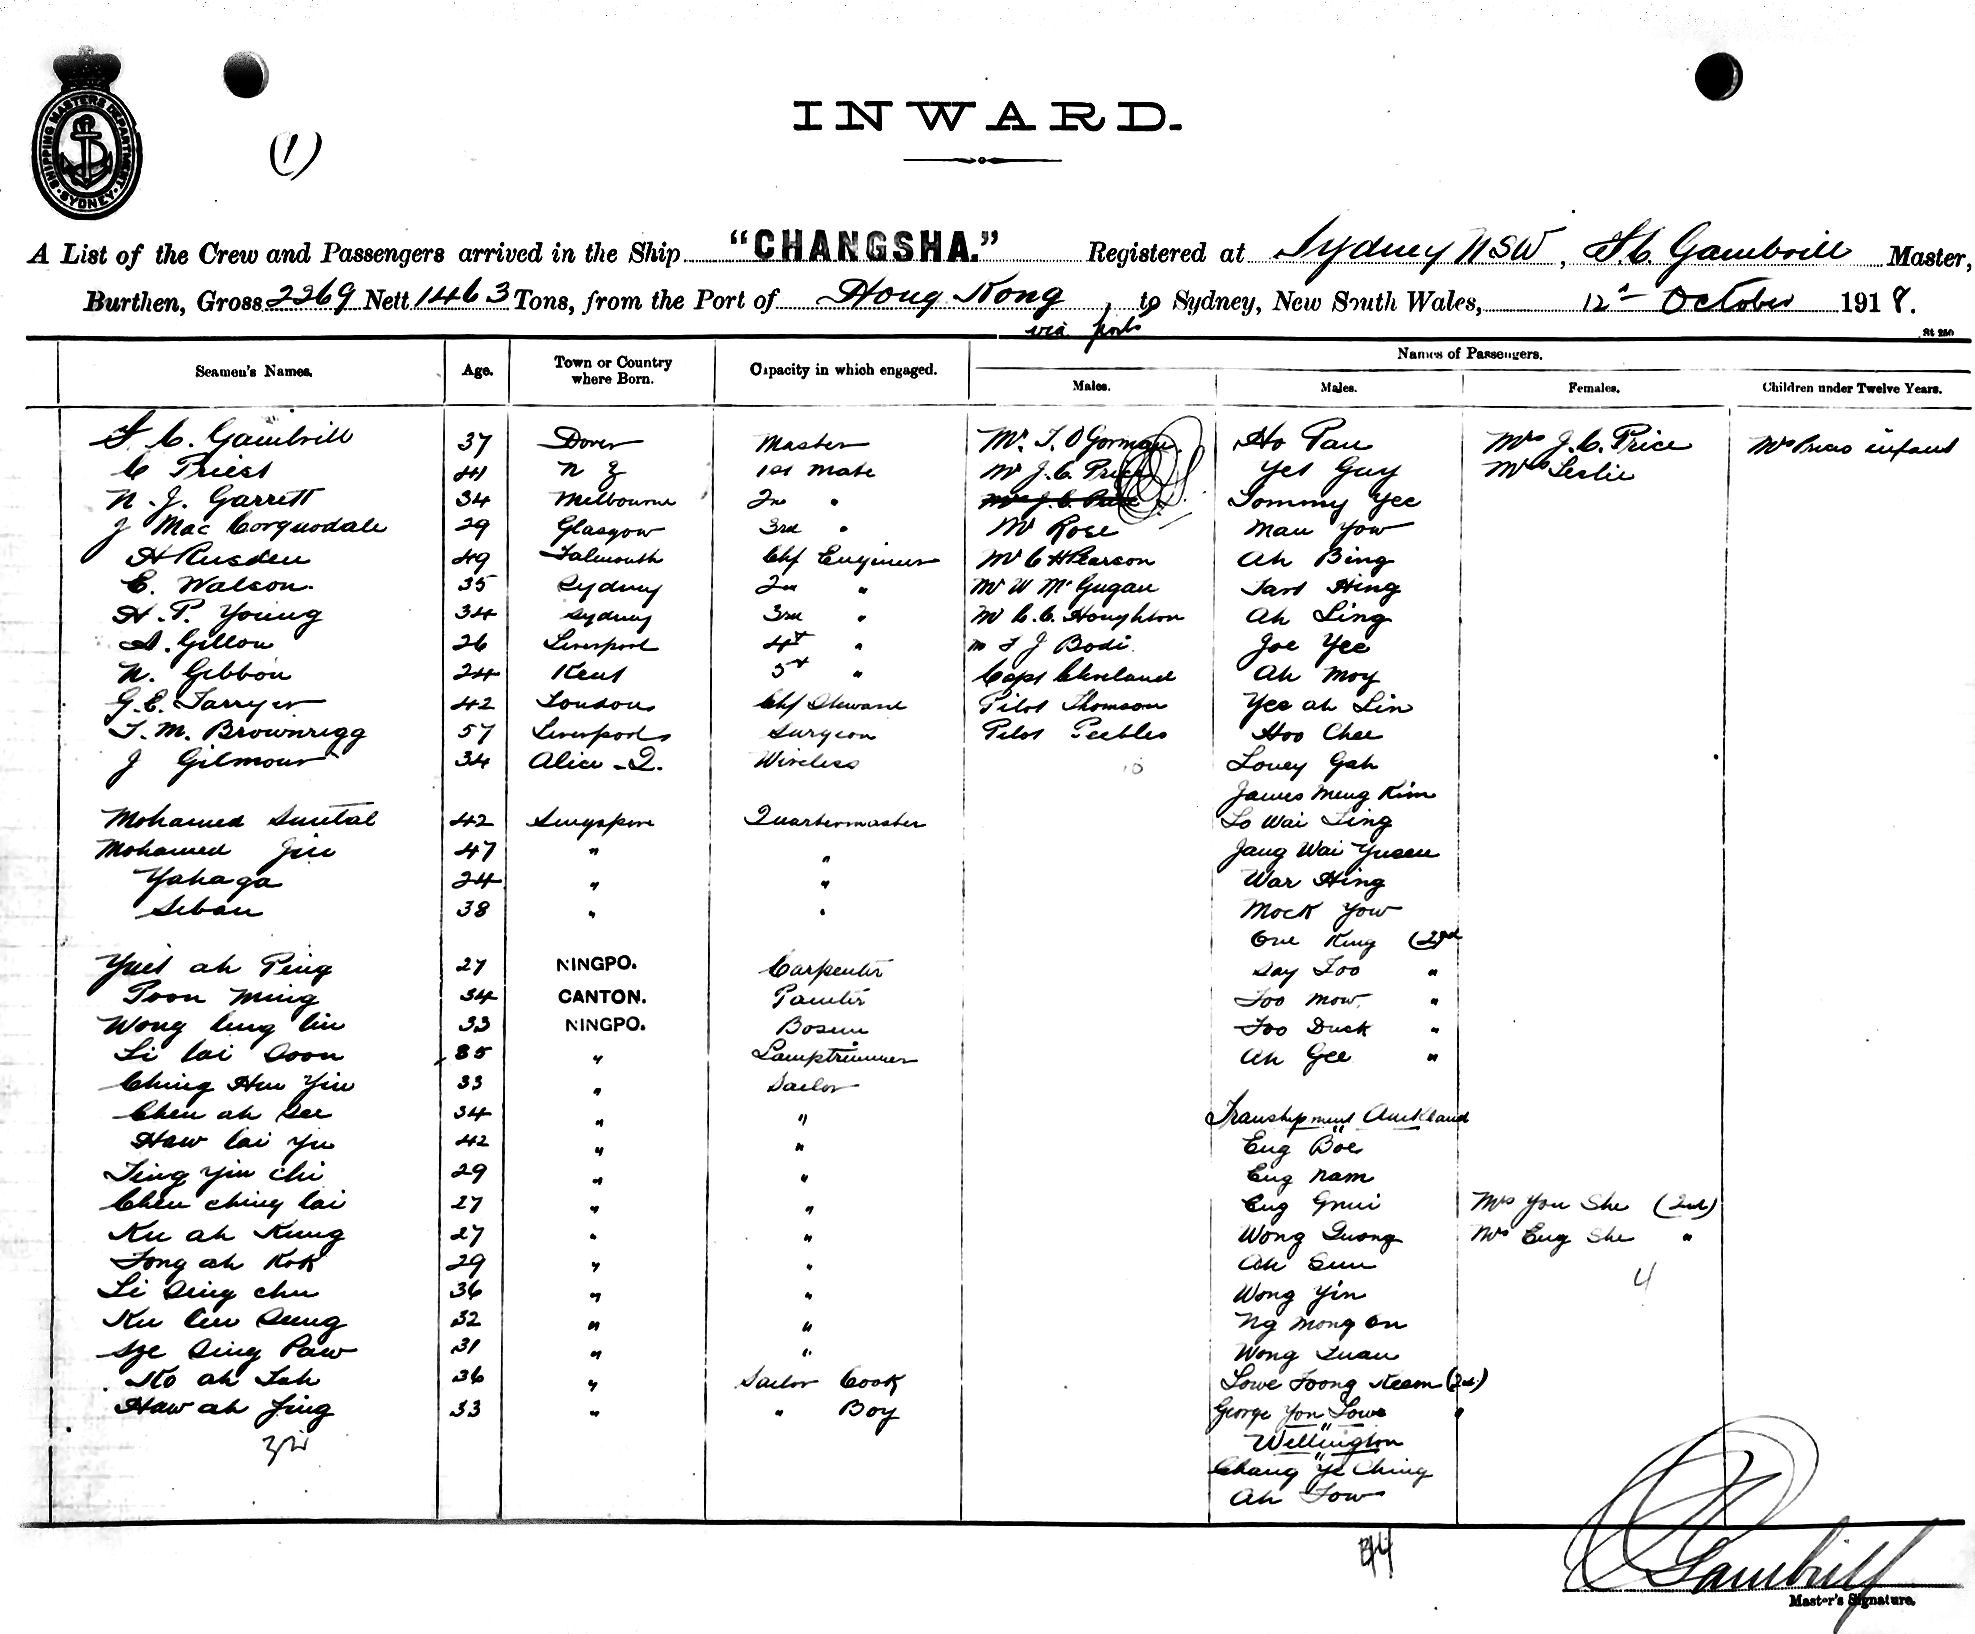 SHIPPING MASTERS DEPARTMENT
SYDNEY
(1)
INWARD.
A List of the Crew and Passengers arrived in the Ship "CHANGSHA." Registered at Sydney NSW, F. C. Gambrill Master,
Burthen, Gross 2269 Nett 1463 Tons, from the Port of Hong Kong, to Sydney, New South Wales, 12th October 1918.
via ports
St 250
Seamen's Names. Age. Town or Country where Born. Capacity in which engaged. Names of Passengers.
Males. Males. Females. Children under Twelve Years.
F. C. Gambrill 37 Dover Master Mr. T. O'Gorman Ho Pau Mrs J. C. Price Mrs Prices infant
C Priest 41 N Z 1st Mate Mr J. C. Price Yet Guy Mrs Leslie
N. J. Garrett 34 Melbourne 2n " Mrs J. C. Price Tommy Yee
J Mac Corquodale 29 Glasgow 3rd " Mr Rose Mau Yow
H Rusden 49 Falmouth Chf Engineer Mr C H Pearson Ah Bing
E. Watson. 35 Sydney 2n " Mr W McGugan Tart Hing
H. P. Young 34 Sydney 3rd " Mr C. C. Houghton Ah Ling
A. Gillow 26 Liverpool 4th " Mr F J Bodi. Joe Yee
N. Gibbon 24 Kent 5th " Capt Cleveland Ah Moy
G. E. Tarryer 42 London Chf Steward Pilot Thomson Yee ah Lin
T. M. Brownrigg 57 Liverpool Surgeon Pilot Peebles Hoo Chee
J Gilmour 34 Alice - Q. Wireless Louey Gah
James Meng Kim
Mohamed 42 Singapore Quartermaster Lo Wai Ling
Mohamed Jin 47 " " Jang Wai Yuseu
Yahaga 24 " " War Hing
Seban 38 " " Mock Yow
One King (2nd
Yuet ah Ping 27 NINGPO. Carpenter Day Foo "
Poon Ming 34 CANTON. Painter Foo Mow. "
Wong Ling Liu 33 NINGPO. Bosun Foo Duck "
Li lai Soon 35 " Lamptrimmer Ah Gee "
Ching Hui Yiu 33 " Sailor
Chen ah See 34 " " Transhipment Auckland
Haw lai Yu 42 " " Eug Boe
Ting Yin Chi 29 " " Eug Nam
Chen ching lai 27 " " Eug Gnui Mrs You She (2nd)
Ku ah Kung 27 " " Wong Quong Mrs Eug She "
Fong ah Kok 29 " " Ah Sun 4
Li Sing chu 36 " " Wong Yin
Ku Liu Sung 32 " " Ng Mong On
Sze Sing Paw 31 " " Wong Quan
Ko ah Tah 36 " Sailor Cook Lowe Foong Keem (2nd)
Haw ah Jing 33 " " Boy George Yon Lowe "
Wellington
Chang Ye Ching
Ah Fow
44
Gambrill
Master's Signature.